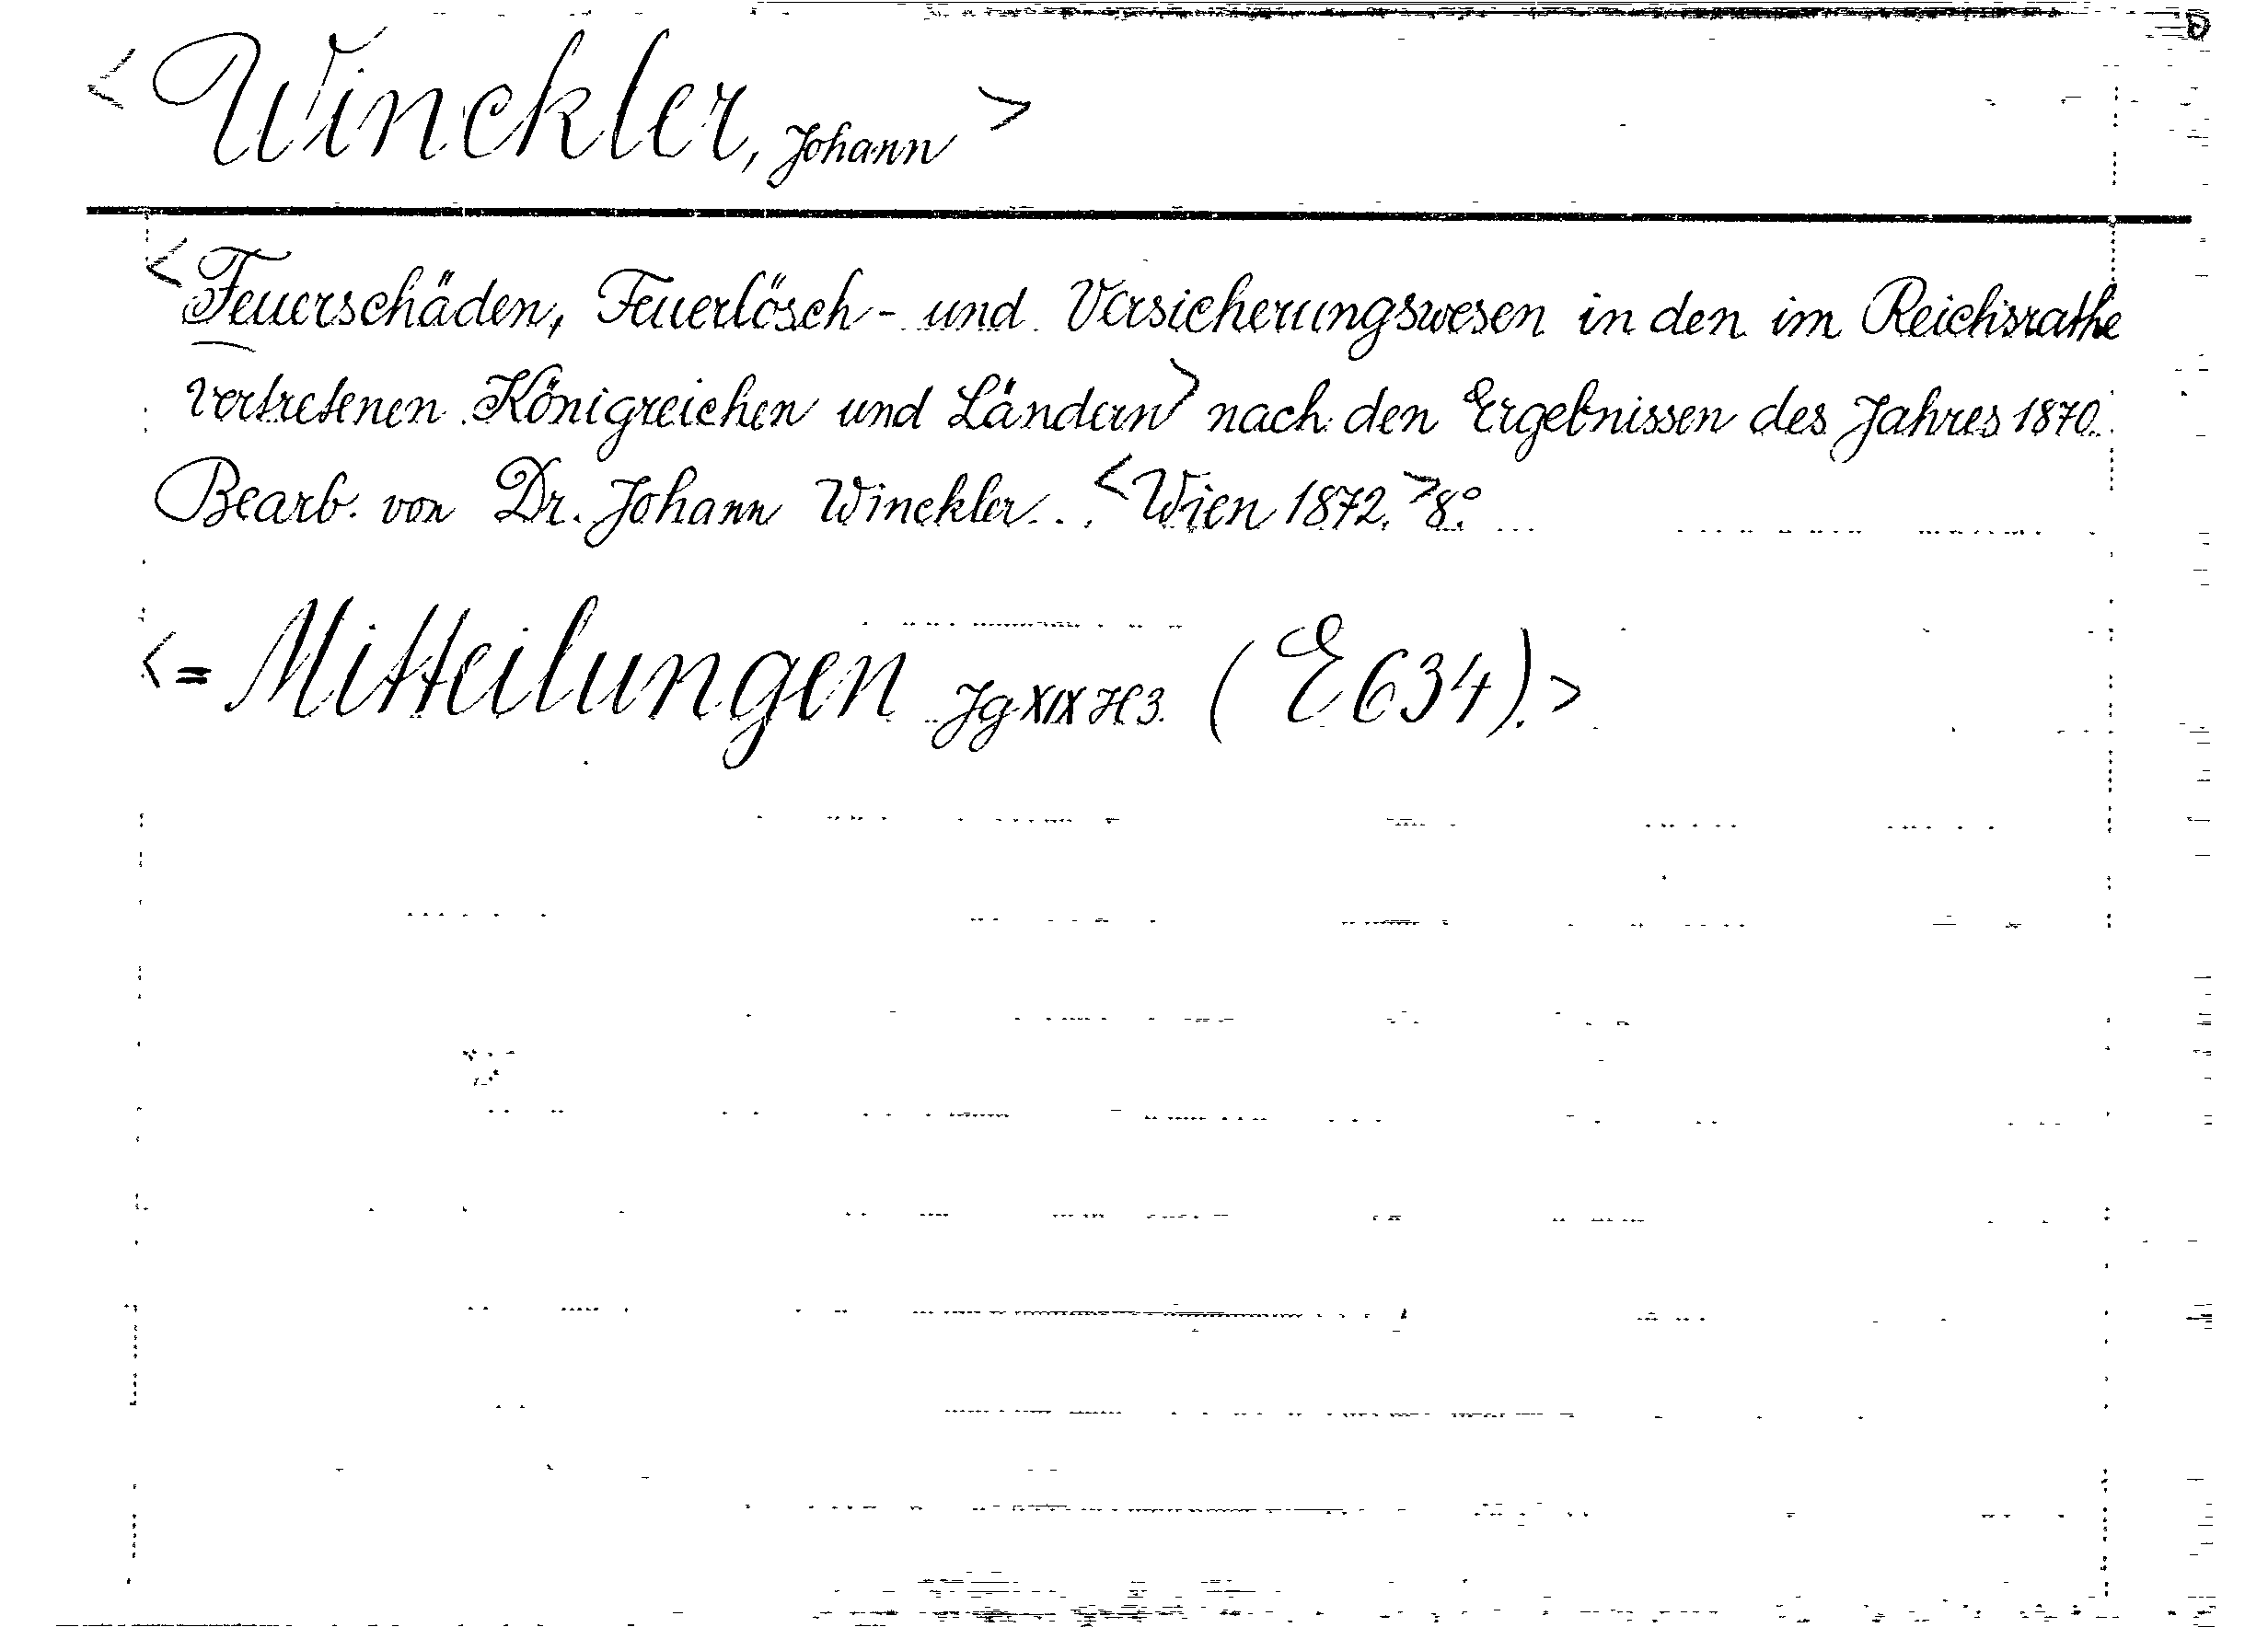 < Winckler, Johann >
< Feuerschäden, Feuerlösch- und Versicherungswesen in den im Reichsrathe
vertretenen Königreichen und Ländern > nach den Ergebnissen des Jahres 1870.
Bearb. von Dr. Johann Winckler... < Wien 1872. > 8°.
< = Mitteilungen Jg XIX H 3. (E 634). >